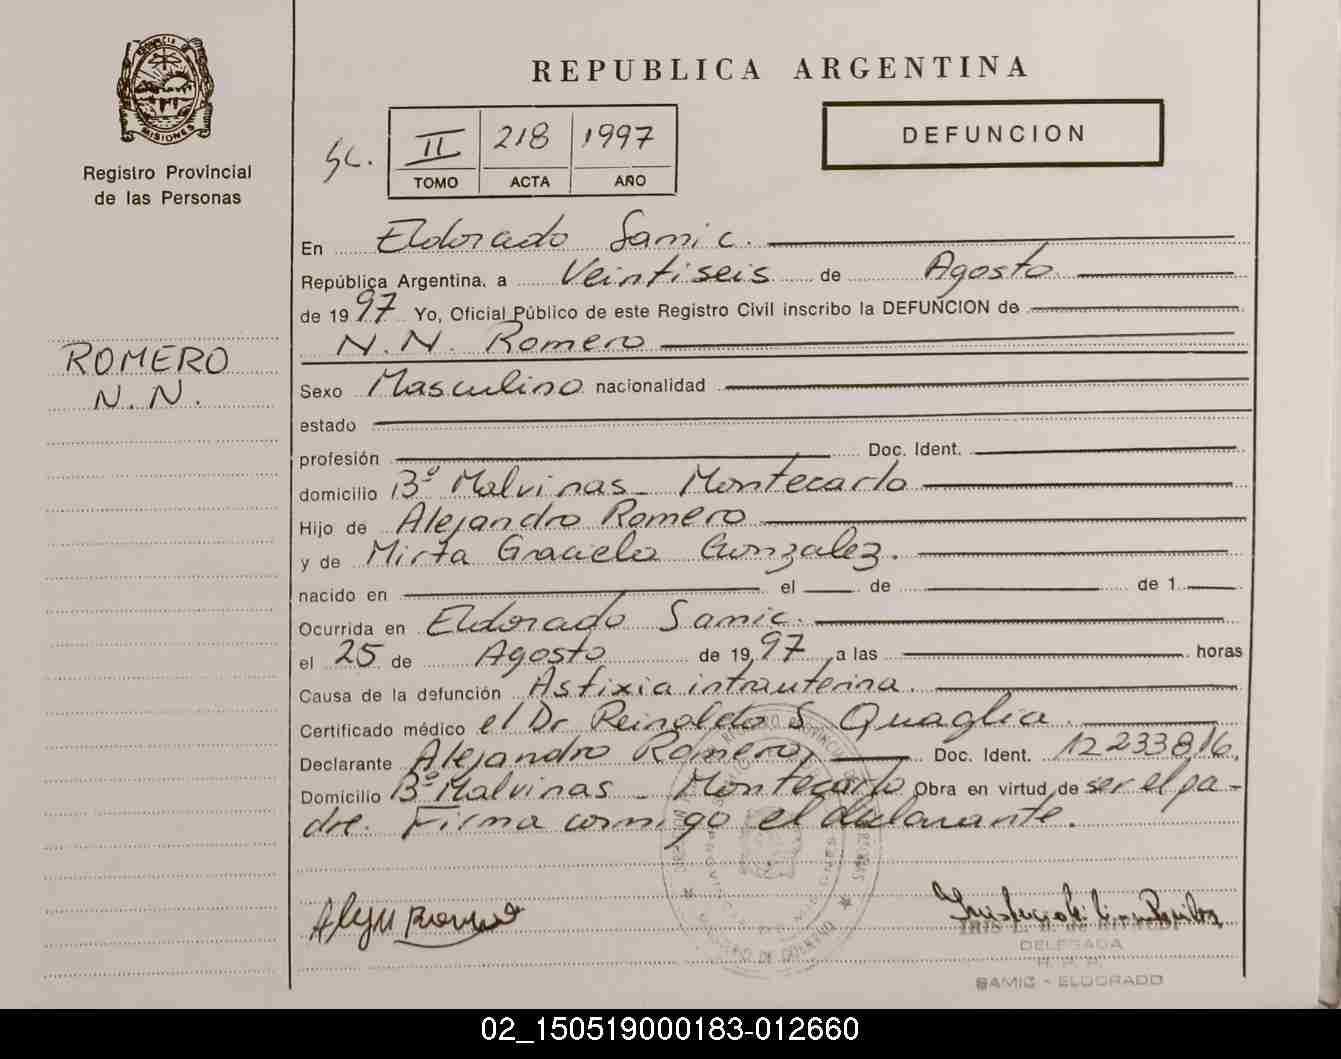 PROVINCIA DE
MISIONES
Registro Provincial
de las Personas
ROMERO
N.N.
REPUBLICA ARGENTINA
DEFUNCION
II 218 1997
TOMO ACTA AÑO
En Eldorado Samic.
República Argentina, a Veintiseis de Agosto
de 1997 Yo, Oficial Público de este Registro Civil inscribo la DEFUNCION de
N.N. Romero
Sexo Masculino nacionalidad
estado
profesión Doc. Ident.
domicilio Bº Malvinas - Montecarlo
Hijo de Alejandro Romero
y de Mirta Graciela Gonzalez.
nacido en el de de 1
Ocurrida en Eldorado Samic.
el 25 de Agosto de 1997 a las horas
Causa de la defunción Asfixia intrauterina.
Certificado médico el Dr Reinaldo S Quaglia.
Declarante Alejandro Romero, Doc. Ident. 12.233.816,
Domicilio Bº Malvinas - Montecarlo Obra en virtud de ser el pa-
dre. Firma conmigo el declarante.
DELEGADA
SAMIC - ELDORADO
02_150519000183-012660